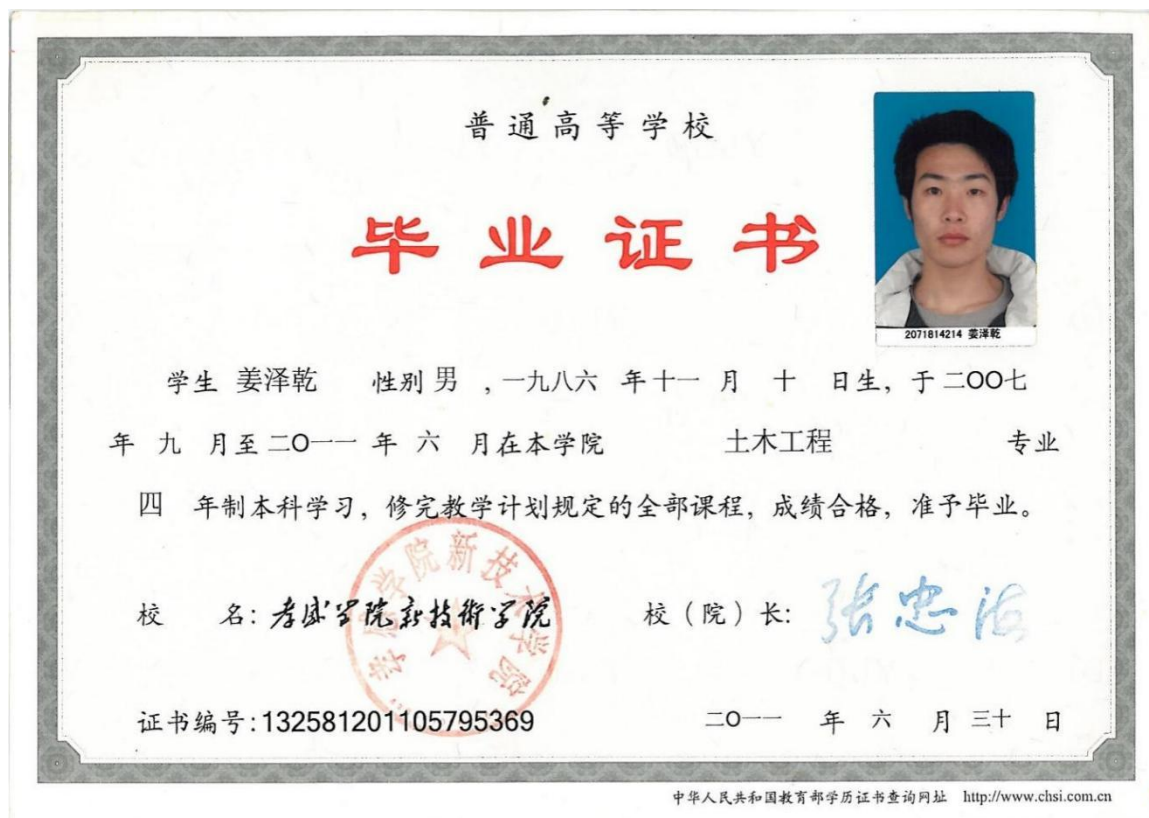 普通高等学校
毕业证书
2071814214 姜泽乾
学生 姜泽乾 性别 男 ，一九八六 年 十一 月 十 日生，于 二OO七
年 九 月至 二O一一 年 六 月在本学院 土木工程 专业
四 年制本科学习，修完教学计划规定的全部课程，成绩合格，准予毕业。
校 名：孝感学院新技術学院
孝感学院新技术学院
校（院）长：张忠
证书编号：132581201105795369
二O一一 年 六 月 三十 日
中华人民共和国教育部学历证书查询网址 http://www.chsi.com.cn